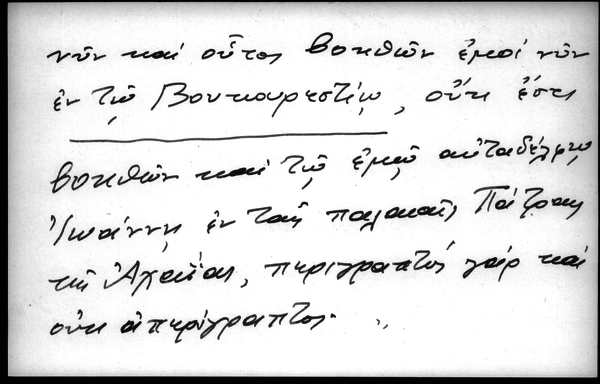 νῦν καί οὗτος βοηθῶν ἐμοί νῦν
ἐν τῷ Βουκουρεστίῳ, οὔκ ἐστι
βοηθῶν καί τῷ ἐμῷ αὐταδέλφῳ
Ἰωάννῃ ἐν ταῖς παλαιαῖς Πάτραις
τῆς Ἀχαΐας, περιγραπτός γάρ καί
οὐκ ἀπερίγραπτος.